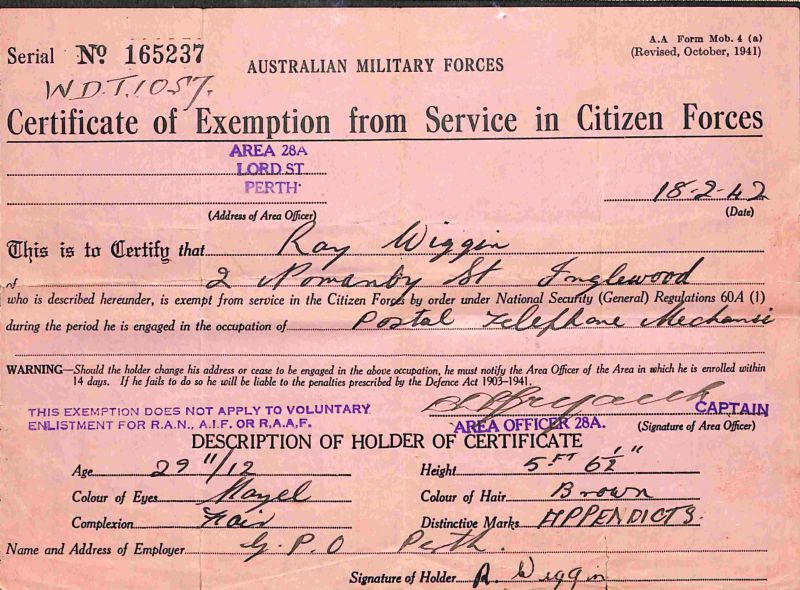 A.A Form Mob. 4 (a)
(Revised, October, 1941)
Serial No 165237
W.D.T.1057.
AUSTRALIAN MILITARY FORCES
Certificate of Exemption from Service in Citizen Forces
AREA 28A
LORD ST.
PERTH
18-2-42
(Address of Area Officer)
(Date)
This is to Certify that Ray Wiggin
of 2 Nomanby St Inglewood
who is described hereunder, is exempt from service in the Citizen Forces by order under National Security (General) Regulations 60A (1)
during the period he is engaged in the occupation of Postal Telephone Mechanic
WARNING—Should the holder change his address or cease to be engaged in the above occupation, he must notify the Area Officer of the Area in which he is enrolled within
14 days. If he fails to do so he will be liable to the penalties prescribed by the Defence Act 1903-1941.
THIS EXEMPTION DOES NOT APPLY TO VOLUNTARY
ENLISTMENT FOR R.A.N., A.I.F. OR R.A.A.F.
CAPTAIN
AREA OFFICER 28A. (Signature of Area Officer)
DESCRIPTION OF HOLDER OF CERTIFICATE
Age 29 11/12 Height 5 FT 6½"
Colour of Eyes Hazel Colour of Hair Brown
Complexion Fair Distinctive Marks APPENDICTS.
Name and Address of Employer G.P.O Perth.
Signature of Holder R. Wiggin